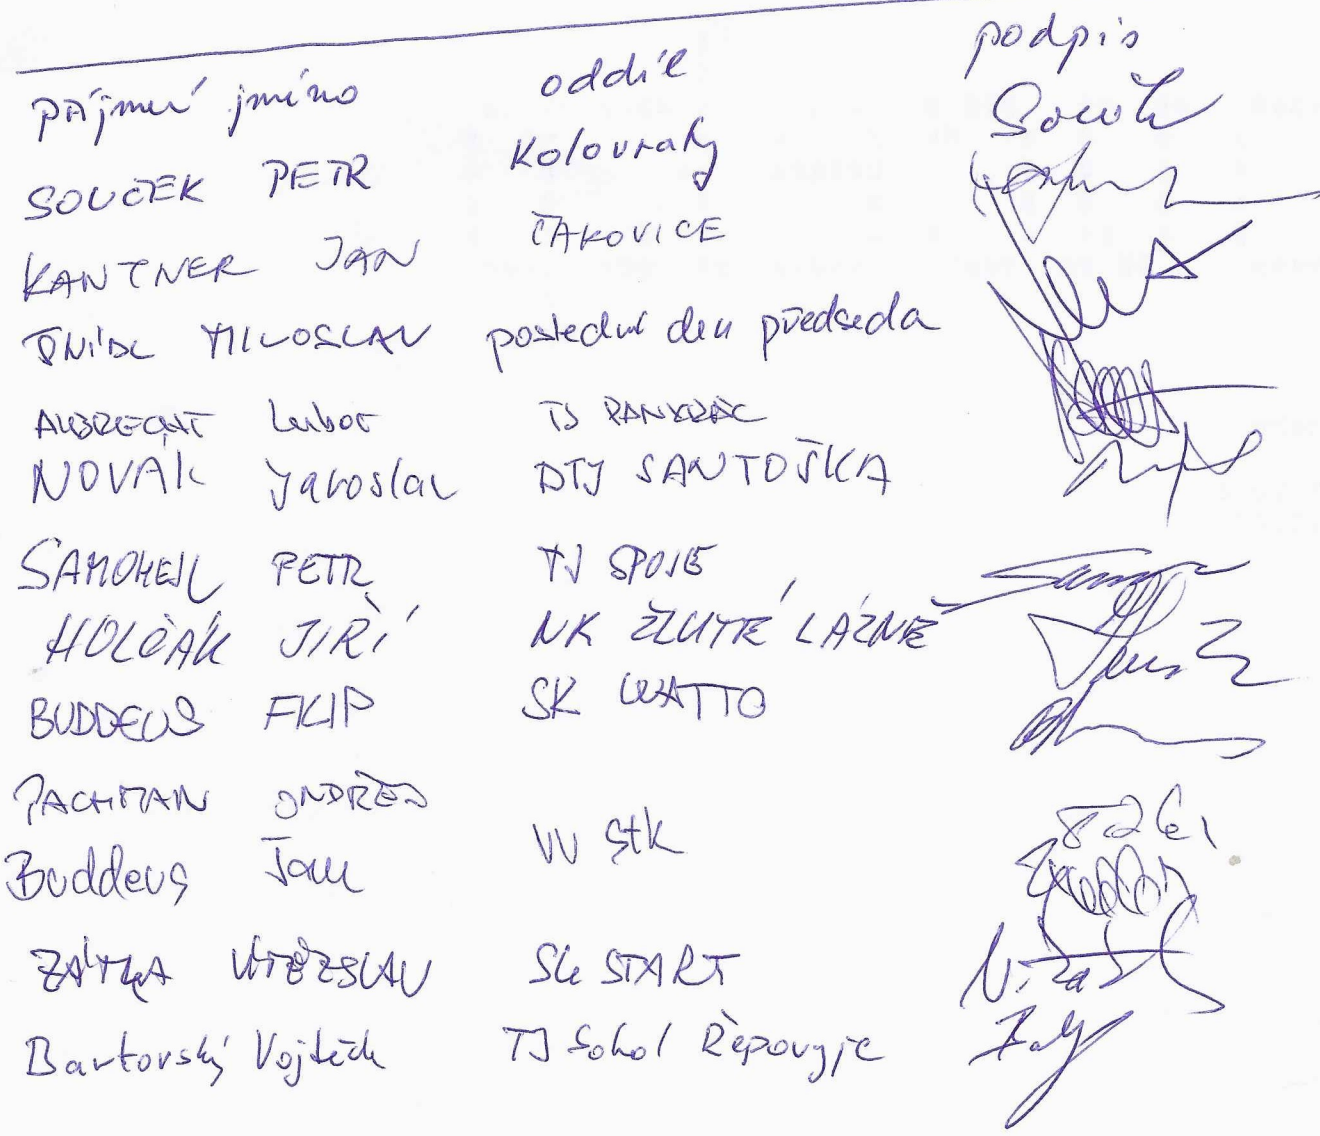 příjmení jméno oddíl podpis
SOUČEK PETR Kolovraty
KANTNER JAN ČAKOVICE
ŠNÍDL MILOSLAV poslední den předseda
ALBRECHT Lubor TJ PANKRÁC
NOVÁK Jaroslav DTJ SANTOŠKA
SAMOHEJL PETR TJ SPOJE
HOLČÁK JIŘÍ NK ŽLUTÉ LÁZNĚ
BUDDEUS FILIP SK WATTO
PACHMAN ONDŘEJ
Buddeus Jan VV STK
ZÁTKA VÍTĚZSLAV SK START
Bartovský Vojtěch TJ Sokol Řeporyje